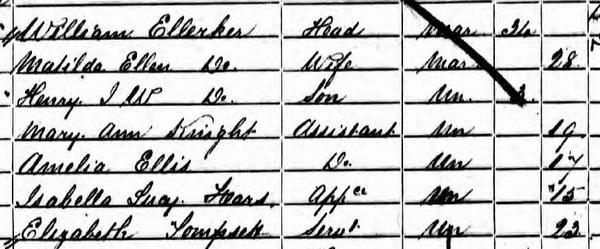 William Ellerker Head Mar 36
Matilda Ellen Do. Wife Mar. 28
Henry J W Do. Son Un. 3
Mary Ann Knight Assistant Un 19
Amelia Ellis Do Un 17
Isabella Lucy Hears. Appce Un 15
Elizabeth Tompsett Servt. Un 23